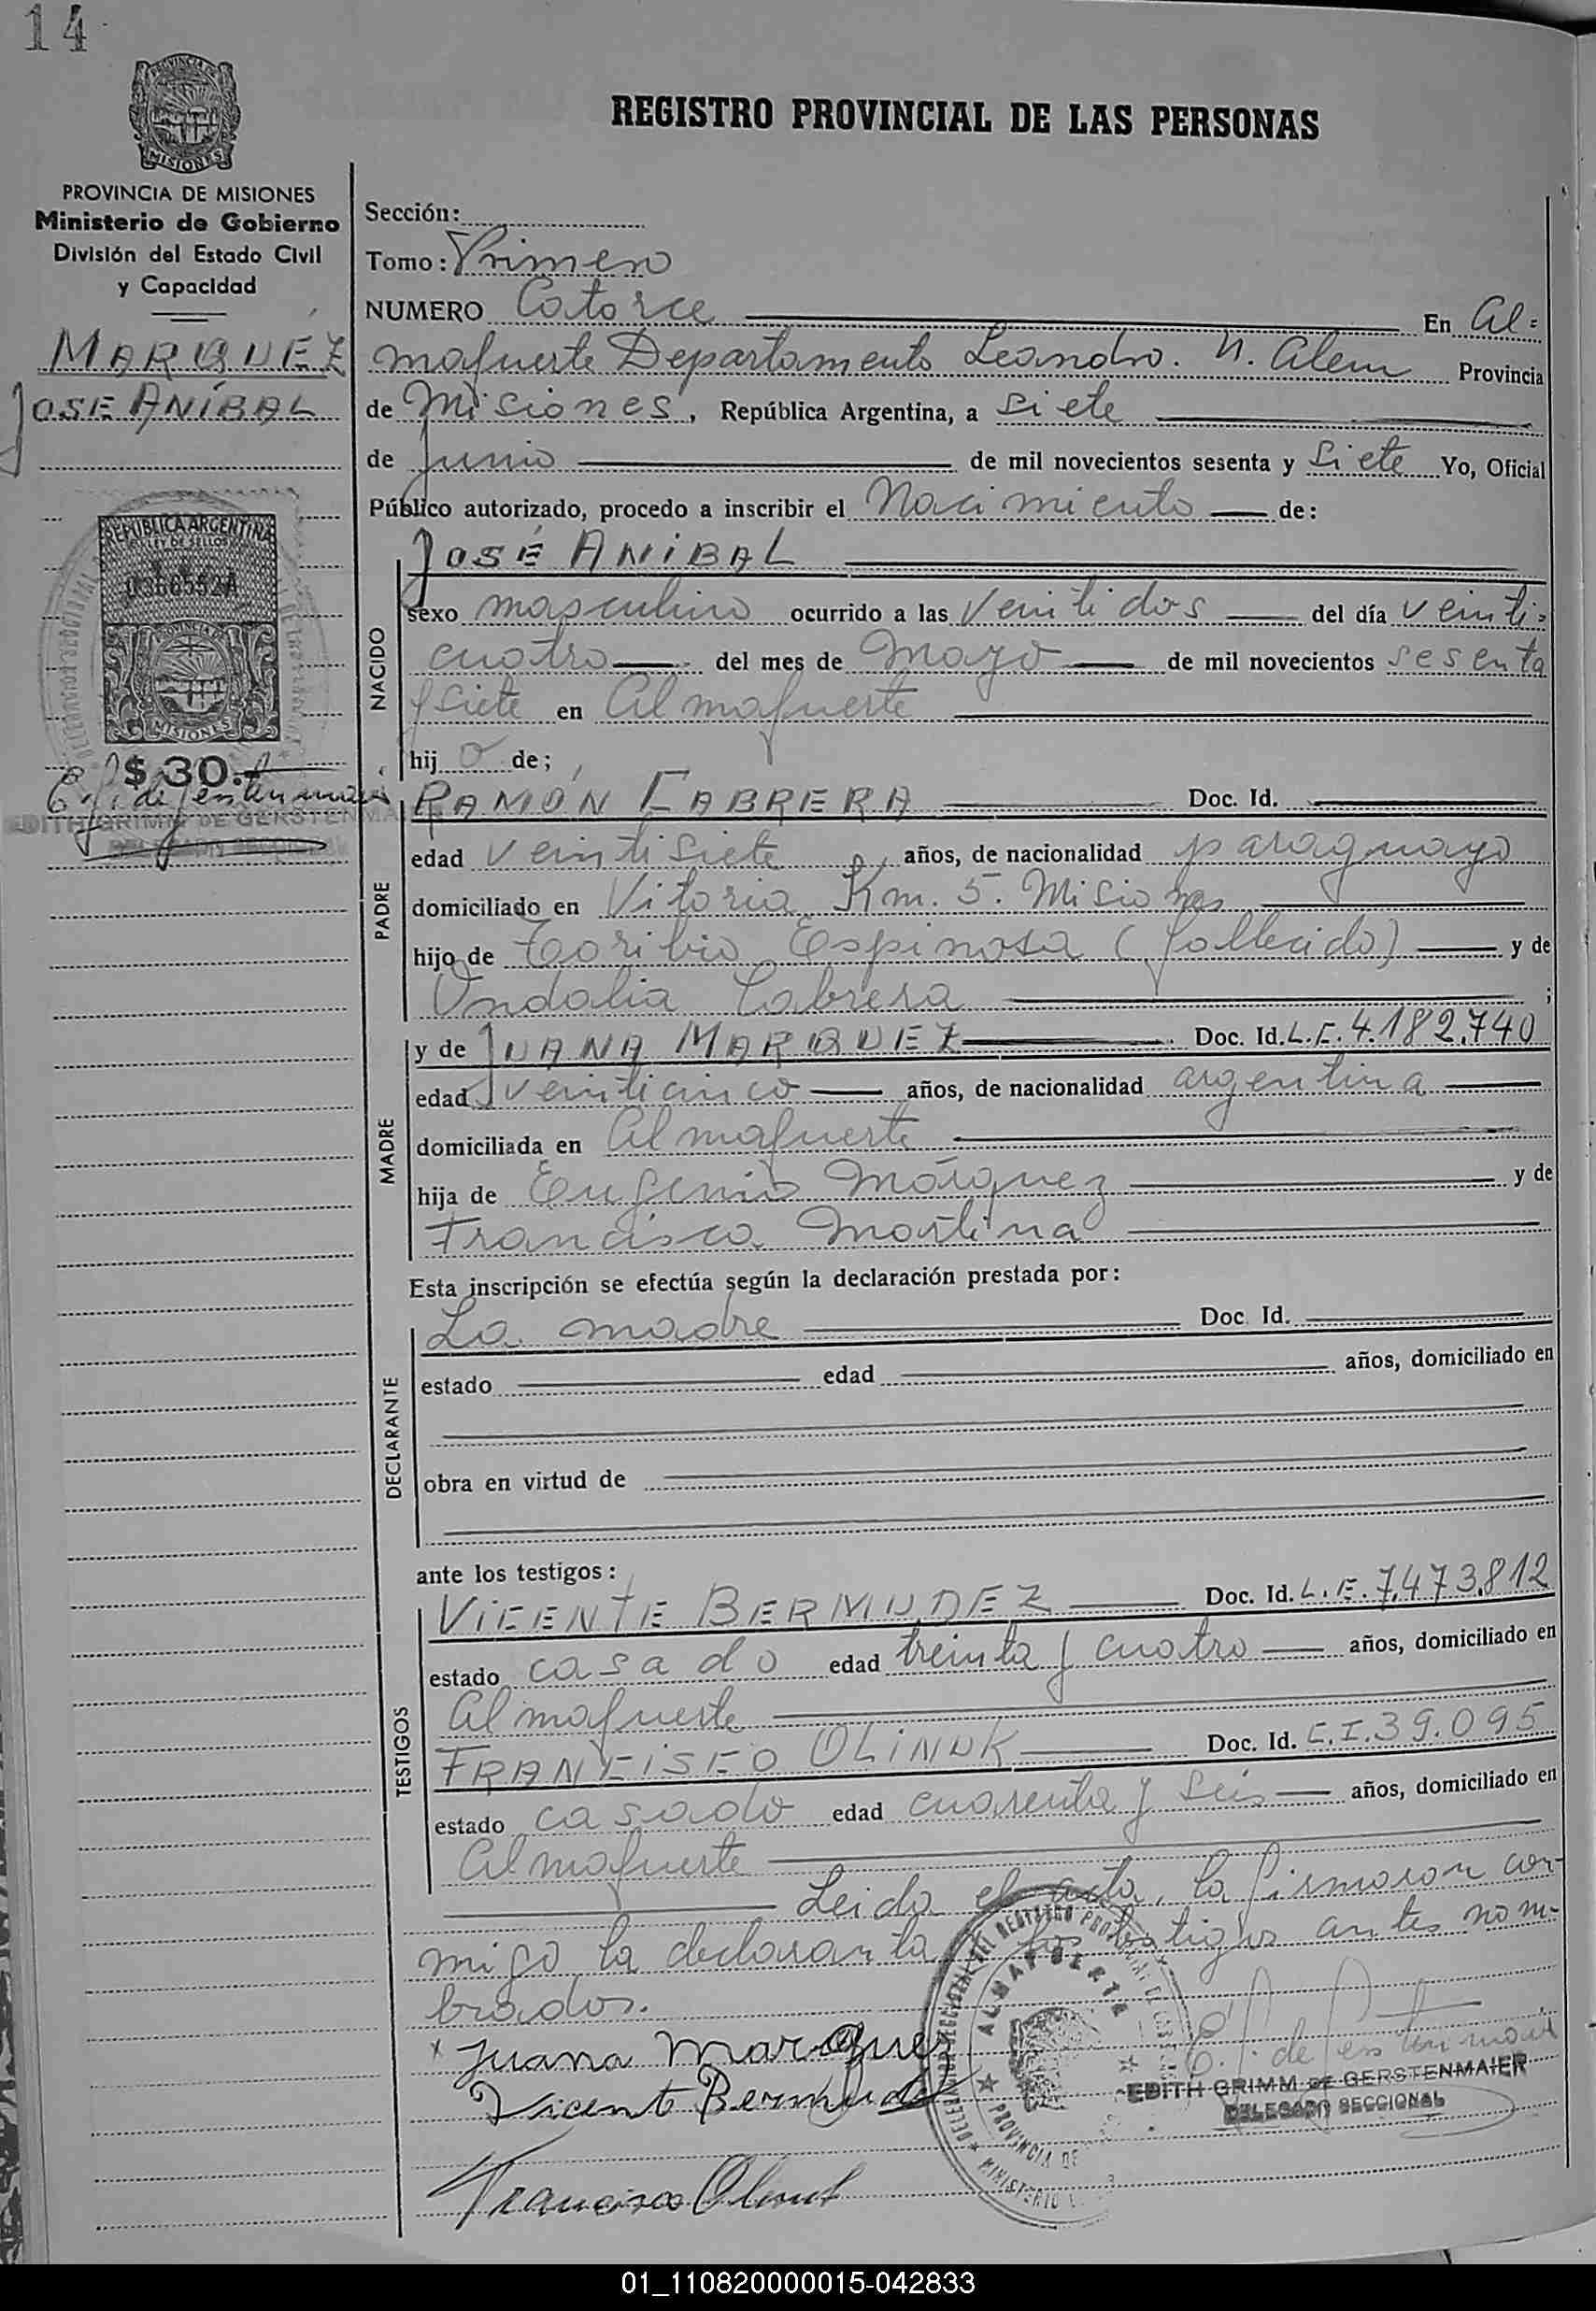 14
REGISTRO PROVINCIAL DE LAS PERSONAS
PROVINCIA DE MISIONES
Ministerio de Gobierno
División del Estado Civil
y Capacidad
MARQUÉZ
JOSE ANÍBAL
REPUBLICA ARGENTINA
LEY DE SELLOS
PROVINCIA DE
MISIONES
$ 30.-
EDITH GRIMM DE GERSTENMAIER
DELEGADO SECCIONAL
Sección:
Tomo: Primero
NUMERO Catorce En Al=
mafuerte Departamento Leandro. N. Alem Provincia
de Misiones, República Argentina, a siete
de Junio de mil novecientos sesenta y Siete Yo, Oficial
Público autorizado, procedo a inscribir el Nacimiento de:
NACIDO
JOSÉ ANIBAL
sexo masculino ocurrido a las Veintidos del día veinti=
cuatro del mes de Mayo de mil novecientos sesenta
y Siete en Almafuerte
hijo de;
PADRE
RAMÓN CABRERA Doc. Id.
edad veintisiete años, de nacionalidad paraguayo
domiciliado en Vitoria Km. 5. Misiones
hijo de Toribio Espinosa (fallecido) y de
Undalia Cabrera ;
MADRE
y de JUANA MARQUEZ Doc. Id. L.C. 4.182.740
edad veinticinco años, de nacionalidad argentina
domiciliada en Almafuerte
hija de Eugenio Márquez y de
Francisca Martina
Esta inscripción se efectúa según la declaración prestada por:
DECLARANTE
La madre Doc. Id.
estado edad años, domiciliado en
obra en virtud de
ante los testigos:
TESTIGOS
VICENTE BERMUDEZ Doc. Id. L.E. 7.473.812
estado casado edad treinta y cuatro años, domiciliado en
Almafuerte
FRANCISCO OLINUK Doc. Id. C.I. 39.095
estado casado edad cuarenta y seis años, domiciliado en
Almafuerte
Leida el acta, la firmaron con-
migo la declaranta y los testigos antes nom-
brados.
x Juana Marques
Vicente Bermudez
Francisco
ALMAFUERTE
PROVINCIA DE
EDITH GRIMM DE GERSTENMAIER
DELEGADO SECCIONAL
01_110820000015-042833